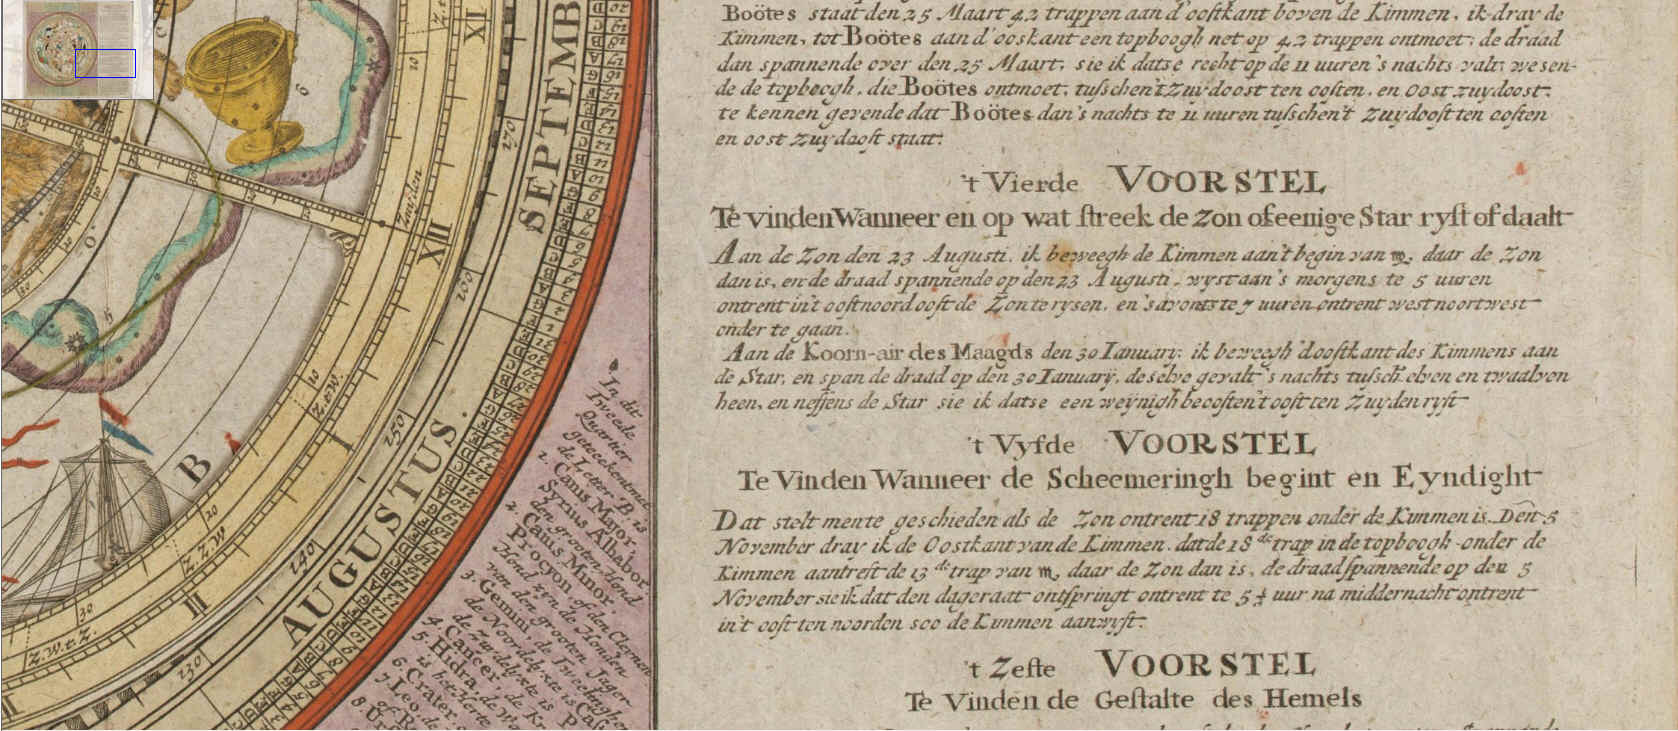 Boötes staat den 25 Maart 42 trappen aan d'oostkant boven de Kimmen, ik dray de
Kimmen, tot Boötes aan d'ooskant een topboogh net op 42 trappen ontmoet: de draad
dan spannende over den 25 Maart, sie ik datse recht op de 11 uuren 's nachts valt, wesen-
de de topboogh, die Boötes ontmoet, tusschen 't Zuydoost ten oosten, en Oost zuydoost,
te kennen gevende dat Boötes dan 's nachts te 11 uuren tusschen 't Zuydoost ten oosten
en oost zuydoost staat.
't Vierde VOORSTEL
Te vinden Wanneer en op wat streek de Zon of eenige Star ryst of daalt
Aan de Zon den 23 Augusti, ik beweegh de Kimmen aan 't begin van ♍, daar de Zon
dan is, en de draad spannende op den 23 Augusti, wyst aan 's morgens te 5 uuren
ontrent in 't oostnoordoost de Zon te rysen, en 's avonts te 7 uuren ontrent westnoortwest
onder te gaan.
Aan de Koorn-air des Maagds den 30 Ianuary: ik beweegh d'oostkant des Kimmens aan
de Star, en span de draad op den 30 Ianuary, deselve gevalt 's nachts tussch. elven en twaalven
heen, en neffens de Star sie ik datse een weynigh beoosten 't oost ten Zuyden ryst
't Vyfde VOORSTEL
Te Vinden Wanneer de Scheemeringh begint en Eyndight
Dat stelt mente geschieden als de Zon ontrent 18 trappen onder de Kimmen is. Den 5
November dray ik de Oostkant van de Kimmen, dat de 18de trap in de topboogh onder de
Kimmen aantreft de 13de trap van ♏, daar de Zon dan is, de draad spannende op den 5
November sie ik dat den dageraat ontspringt ontrent te 5 1/4 uur na middernacht ontrent
in 't oost ten noorden soo de Kimmen aanwyst.
't Zeste VOORSTEL
Te Vinden de Gestalte des Hemels
SEPTEMB
AUGUSTUS.
170
160
150
140
130
XI
XII
I
II
Zuyden
Z.t.W.
Z.Z.W
Z.W.t.Z.
10
20
30
B
In dit
Twede
Quartier
geteeckent met
de Letter B is
1. Canis Major,
Syrius Alhabor
den grooten Hond
2. Canis Minor,
Procyon of den Cleynen
Hond zyn de Honden
van den grooten Jager
3. Gemini, de Tweelingh
de Noordelyxte is
de Zuydelyxte is
4. Cancer, de Kr
5. Hidra, de Wa
is het Herte
6. Crater,
7. Leo, de
8. Ur